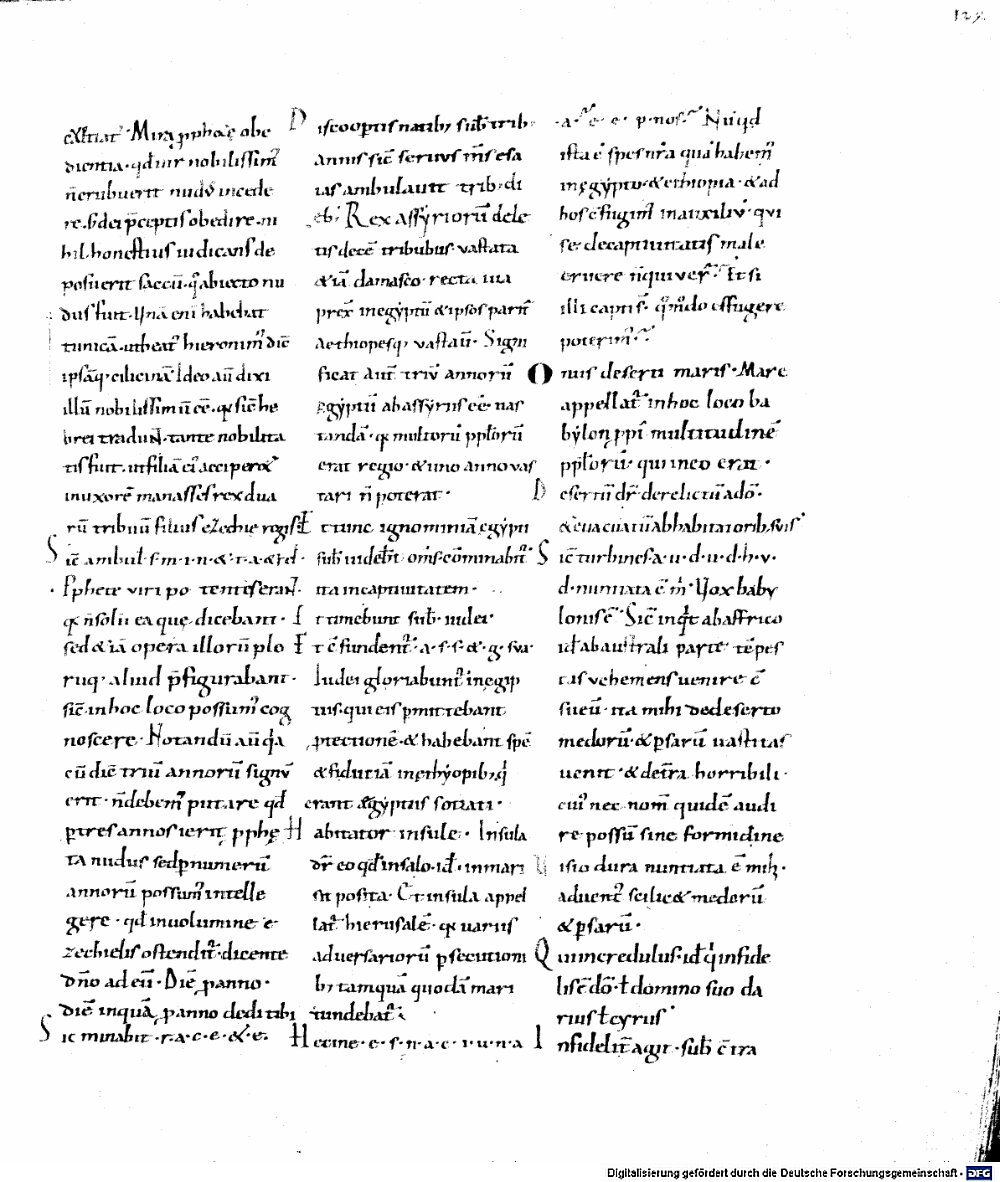 129
extiat᷑ · Mira ꝓphę obe
dientia · qđ uir nobilissim᷒
ñ erubuerit nudꝰ incede
re · s; dei p̄ceptis obedire · ni
hil honestius iudicans de
posuerit saccū · q̇ abiecto nu
dus fuit · Vnā enī habebat
tunicā · ut beat᷒ hieronim᷒ diē
ipsāq; cilicinā Ideo aū dixi
illū nobilissimū eē · q̇ sic̄ he
brei tradunt · tante nobilita
tis fuit · ut filiā ei᷒ acciperet
in uxorē manasses rex dua
rū tribuū filius ezechie regis
Sic̄ ambul · s · m · i · n · &amp; · t · a · &amp; · t · d ·
Pphete viri po tenti erant ·
q̇ ñ solū ea quę dicebant ·
sed &amp; iā opera illorū plo
ruq · aliud p̄figurabant ·
sic̄ in hoc loco possum᷒ cog
noscere · Notandū aū q̇a
cū diē triū annorū signū
erit · ñ debem᷒ putare qđ
ꝑ tres annos ierit ꝓphę
ta nudus sed ꝑ numerū
annorū possum᷒ intelle
gere · qđ in uolumine e
zechielis ostendit᷑ · dicente
dño ad eū · Diē ꝓ anno ·
diē inquā ꝓ anno dedi tibi
Sic minabit · r · a · c · e · &amp; · e ·
D iscooptis natib; sub trib;
annis sic̄ seruus m̄s esa
ias ambulauit trib; di
eb; Rex assyriorū dele
tis decē tribubus · vastata
&amp; iā damasco · recta uia
prex̄ in egyptū &amp; ipsos parit᷑
aethiopesq; vastaū · Signi
ficat aūt triū annorū
egyptū ab assyriis eē · uas
tandā · q̇ multorū pp̄lorū
erat regio · &amp; uno anno vas
tari ñ poterat ·
Et tunc ignominiā egypti
sub uidebit om̄s cōminabit᷑
ita in captiuitatem ·
Et timebunt sub · iudei ·
Et cōfundent᷑ · a · s · s · &amp; · g · sua ·
Iudei gloriabunt᷑ in egip
tiis · qui eis ꝑmittebant
ꝓtectionē · &amp; habebant spē
&amp; fidutiā in ęthyopib; q̇
erant ægyptiis sotiati ·
Habitator insule · Insula
dr̄ eo qđ in salo · iđ · in mari
sit posita · Et insula appel
lat᷑ hierusalē · q̇ uariis
adversariorū ꝑsecutioni
b; tamquā quodā mari
tundebat᷑ ·
Heccine · e · s · n · a · c · i · u · n · a
· a · e · e · p · nos · Nūqđ
ista ē spes nr̄a quā habem᷒
in ęgypto · &amp; ethiopia · &amp; ad
hos cōfugim᷒ in auxiliū · qui
se · de captiuitatis male
eruere nequiuer̄ · Et si
illi capti s̄ · q̇m̄do effugere
poterim᷒
Onus deserti maris · Mare
appellat᷑ in hoc loco ba
bylon ꝓpt̄ multitudinē
pp̄lorū · qui in eo erat ·
Desertū dr̄ · derelictū a dō ·
&amp; euacuatū ab habitatorib; suis
Sic̄ turbines · a · u · d · u · d · h · v ·
d · nuntiata ē m̄ · Vox baby
lonis ē · Sic̄ inq̇t ab affrico
iđ ab australi parte tēpes
tas vehemens uenire ē
sueū · ita mihi de deserto
medorū · &amp; ꝑsarū uastitas
uenit · &amp; de tr̄a horribili ·
cui᷒ nec nom̄ quidē audi
re possū sine formidine
Visio dura nuntiata ē mih ·
aduent᷒ scilic&amp; medorū
&amp; ꝑsarū ·
Qui incredulus · iđ q̇ infide
lis ē dō · ł domino suo da
rius ł cyrus
Infidelit̄ agit · sub cōtra
Digitalisierung gefördert durch die Deutsche Forschungsgemeinschaft - DFG